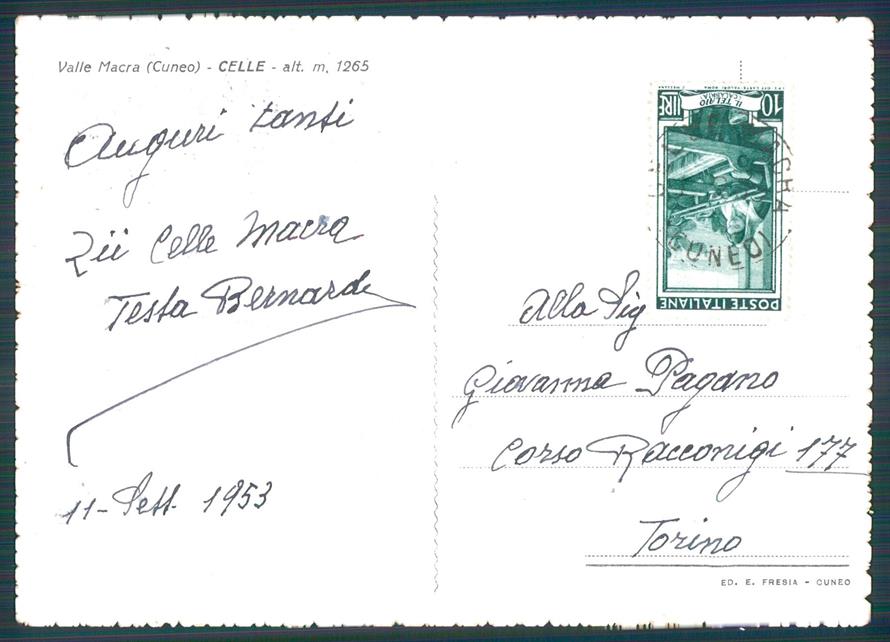 Valle Macra (Cuneo) - CELLE - alt. m. 1265
Auguri tanti
Zii Celle Macra
Testa Bernarde
11 - Sett. 1953
I.P.S. OFF. CARTE VALORI ROMA
10 LIRE
IL TELAIO
CALABRIA
POSTE ITALIANE
MACRA
(CUNEO)
Alla Sig
Giovanna Pagano
Corso Racconigi 177
Torino
ED. E. FRESIA - CUNEO